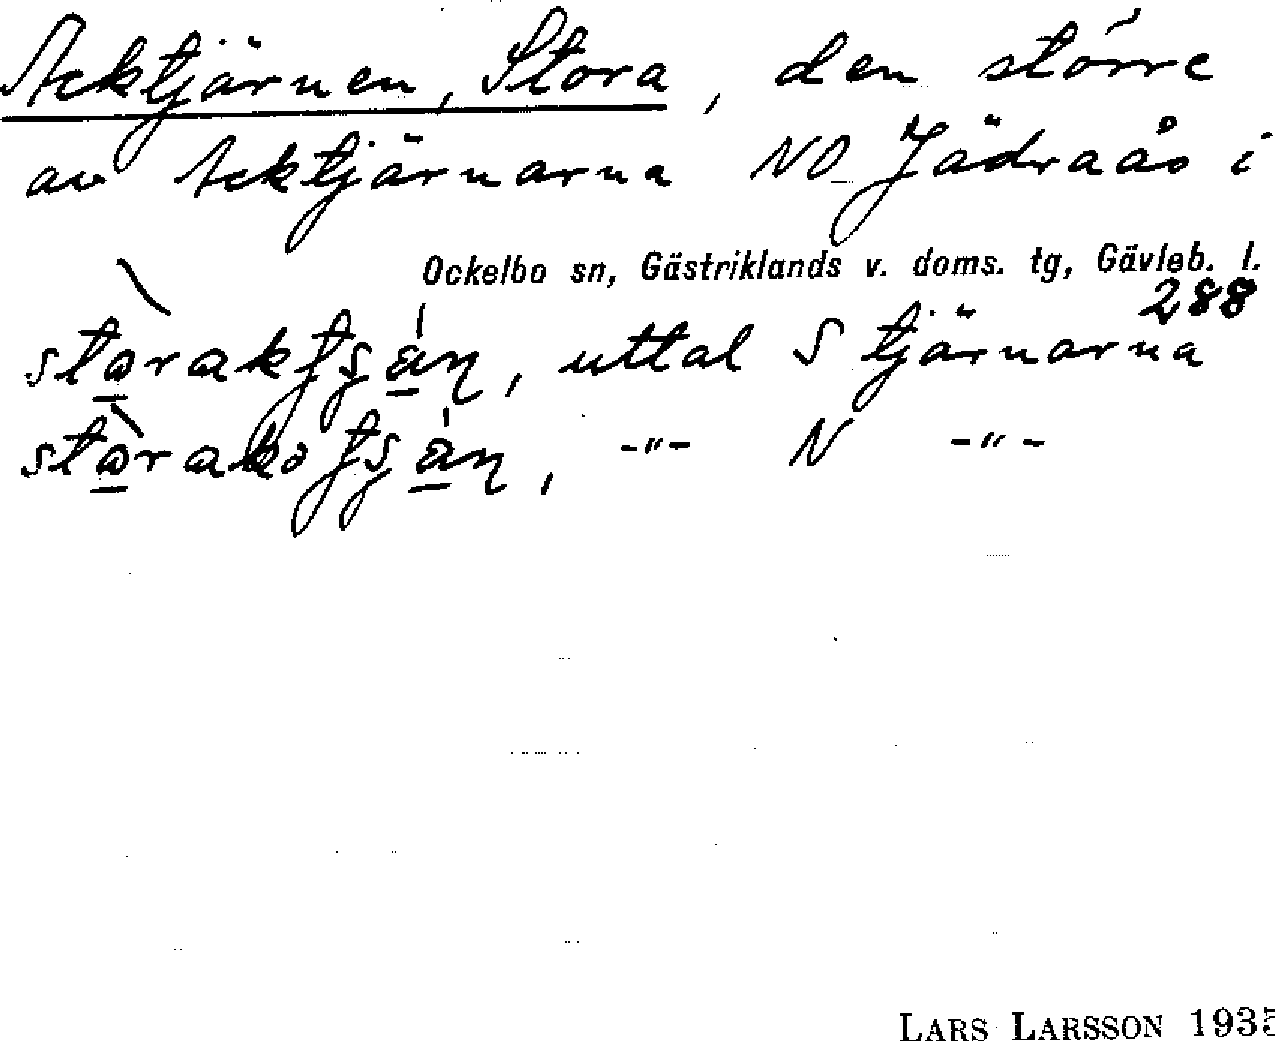 Acktjärnen, Stora, den större
av Acktjärnarna NO Jädraås i
Ockelbo sn, Gästriklands v. doms. tg, Gävleb. l.
288
uttal S tjärnarna
-"- N -"-
LARS LARSSON 1935